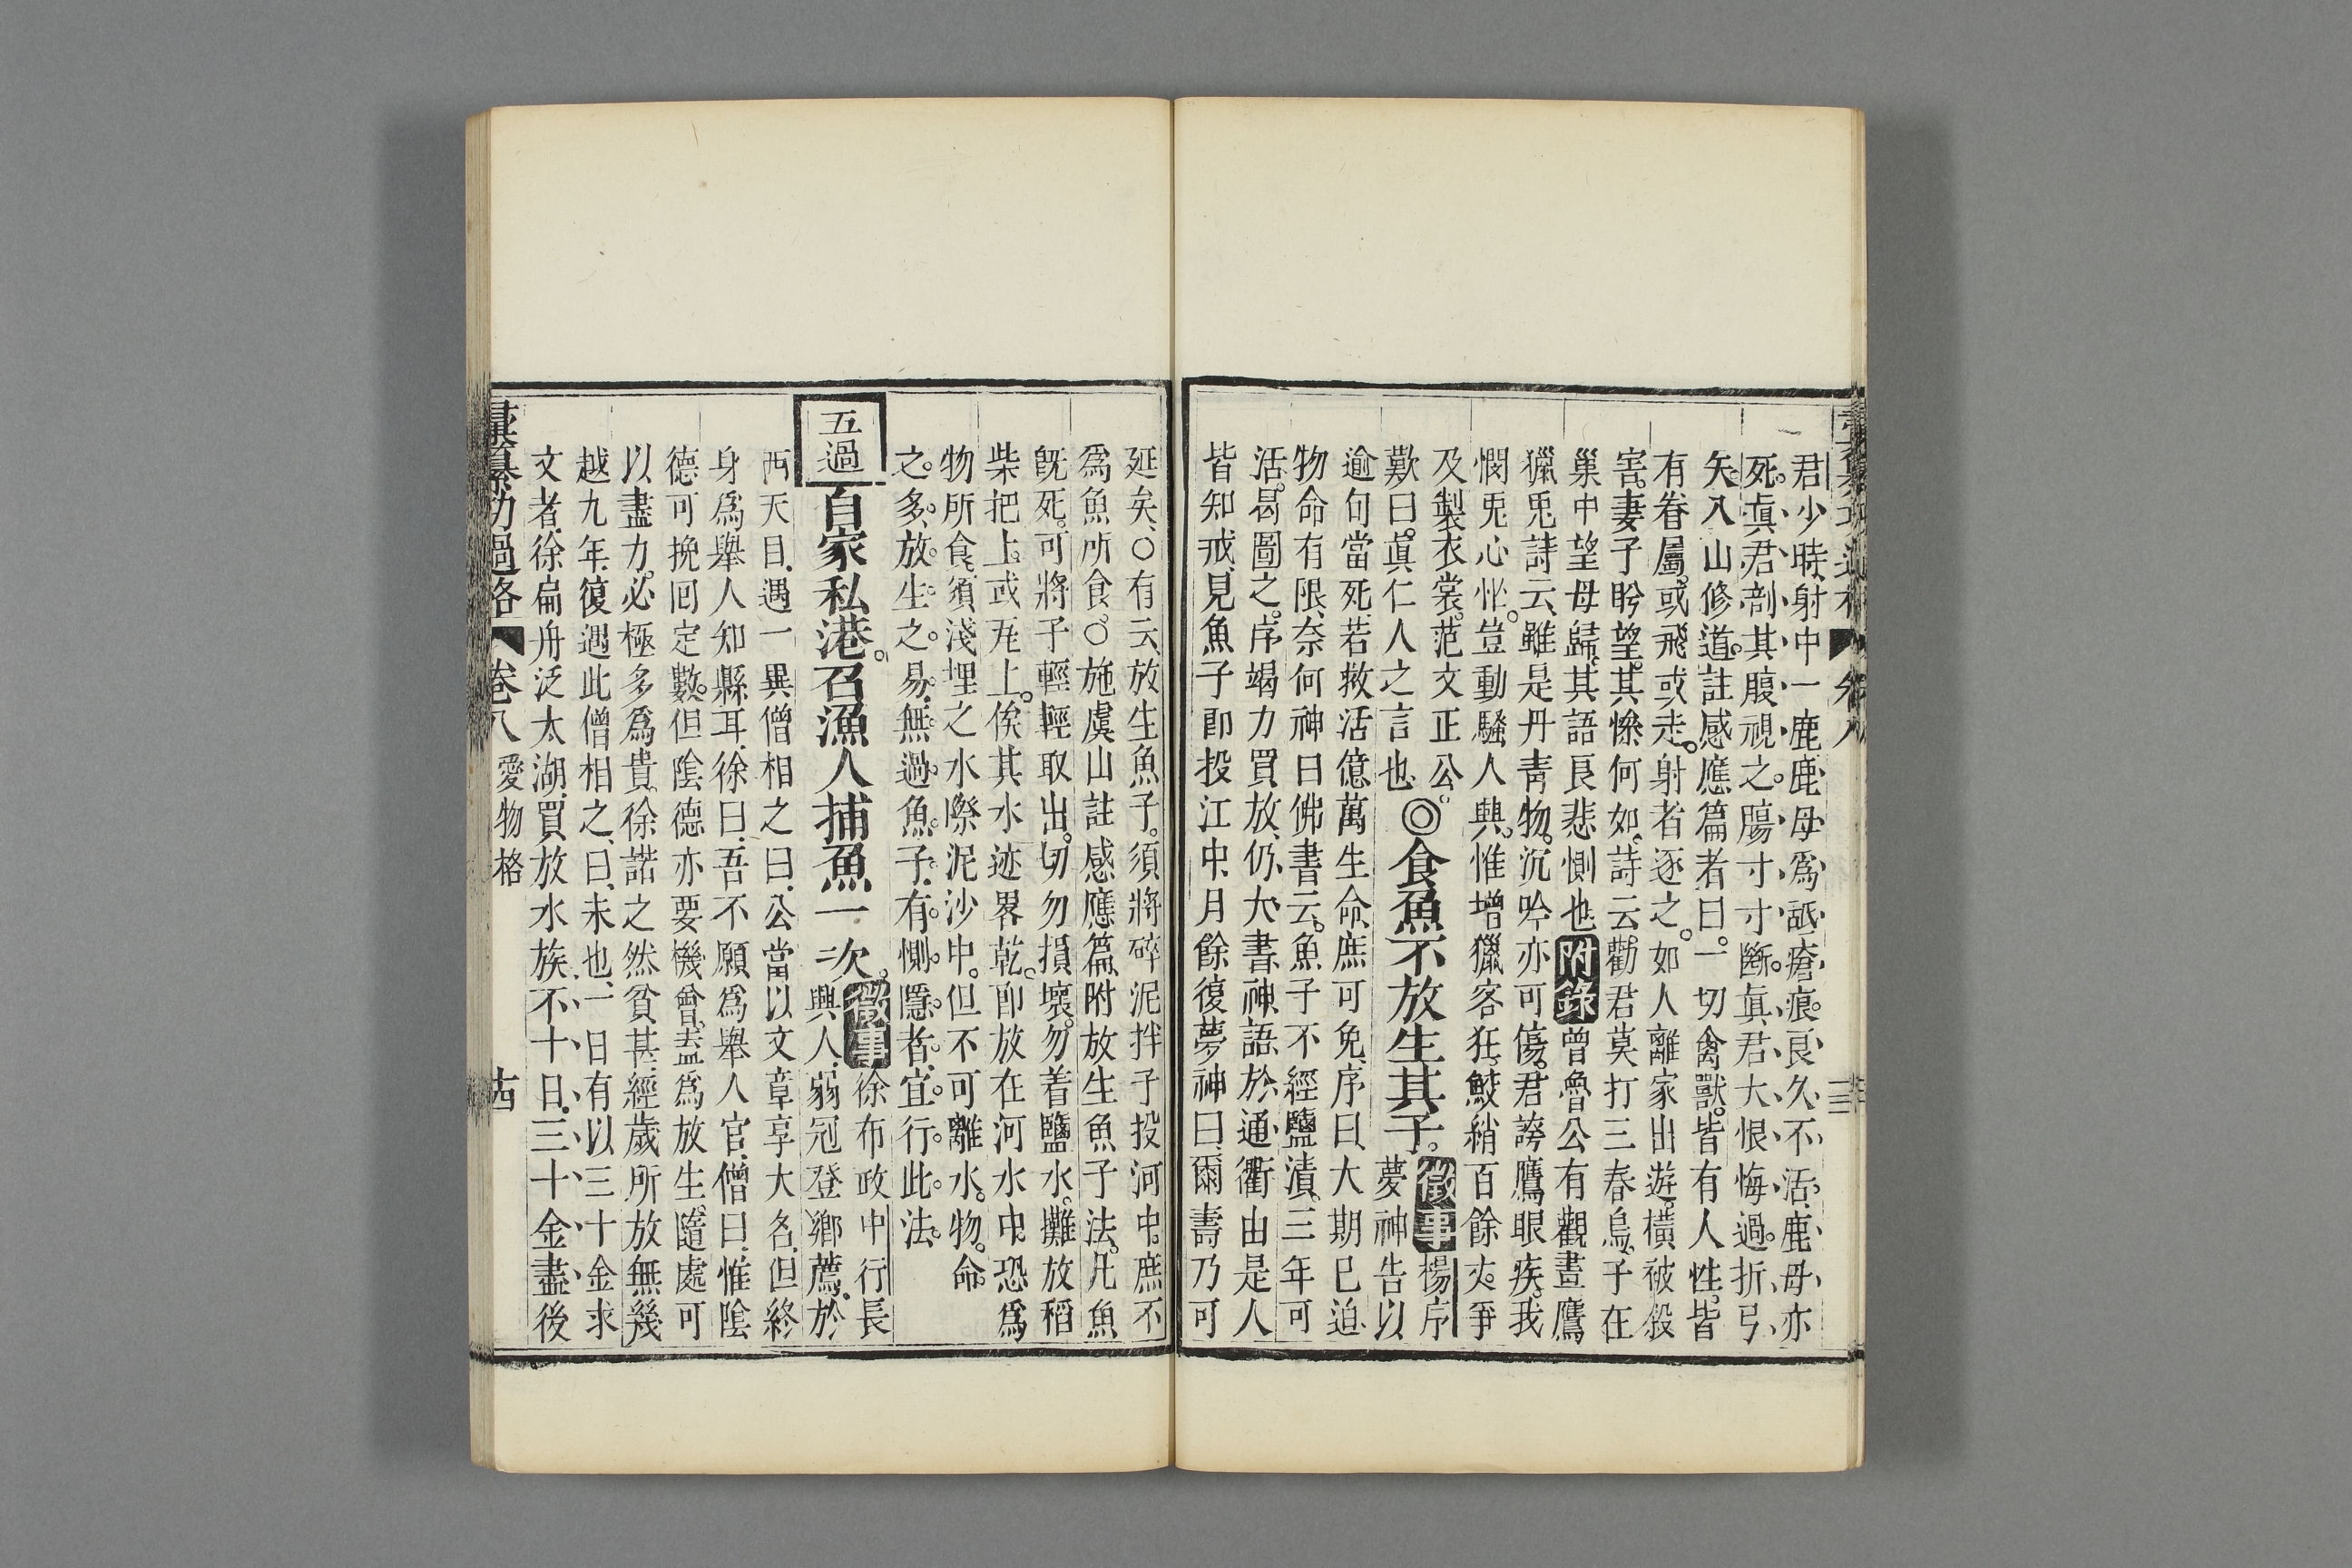 君少時射中一鹿鹿母爲䑛瘡痕良久不活鹿母亦
死眞君剖其腹視之腸寸寸斷眞君大恨悔過折弓
矢入山修道註感應篇者曰一切禽獸皆有人性皆
有眷屬或飛或走射者逐之如人離家出遊橫被殺
害妻子盻望其慘何如詩云勸君莫打三春鳥子在
巢中望母歸其語良悲惻也附錄曾魯公有觀畫鷹
獵兎詩云雖是丹青物沉吟亦可傷君誇鷹眼疾我
憫兎心忙豈動騷人興惟增獵客狂鮫綃百餘尺爭
及製衣裳范文正公◎食魚不放生其子徵事楊序
歎曰眞仁人之言也夢神告以
逾旬當死若救活億萬生命庶可免序曰大期已迫
物命有限奈何神曰佛書云魚子不經鹽漬三年可
活曷圖之序竭力買放仍大書神語於通衢由是人
皆知戒見魚子卽投江中月餘復夢神曰爾壽乃可
延矣○有云放生魚子須將碎泥拌子投河中庶不
爲魚所食○施虞山註感應篇附放生魚子法凡魚
旣死可將子輕輕取出切勿損壞勿着鹽水攤放稻
柴把上或瓦上俟其水迹畧乾卽放在河水中恐爲
物所食須淺埋之水際泥沙中但不可離水物命
之多放生之易無過魚子有惻隱者宜行此法
五過自家私港召漁人捕魚一次徵事徐布政中行長
興人弱冠登鄉薦於
西天目遇一異僧相之曰公當以文章享大名但終
身爲舉人知縣耳徐曰吾不願爲舉人官僧曰惟陰
德可挽回定數但陰德亦要機會葢爲放生隨處可
以盡力必極多爲貴徐諾之然貧甚經歲所放無幾
越九年復遇此僧相之曰未也一日有以三十金求
文者徐扁舟泛太湖買放水族不十日三十金盡後
彙纂功過格 卷八 愛物格 十四